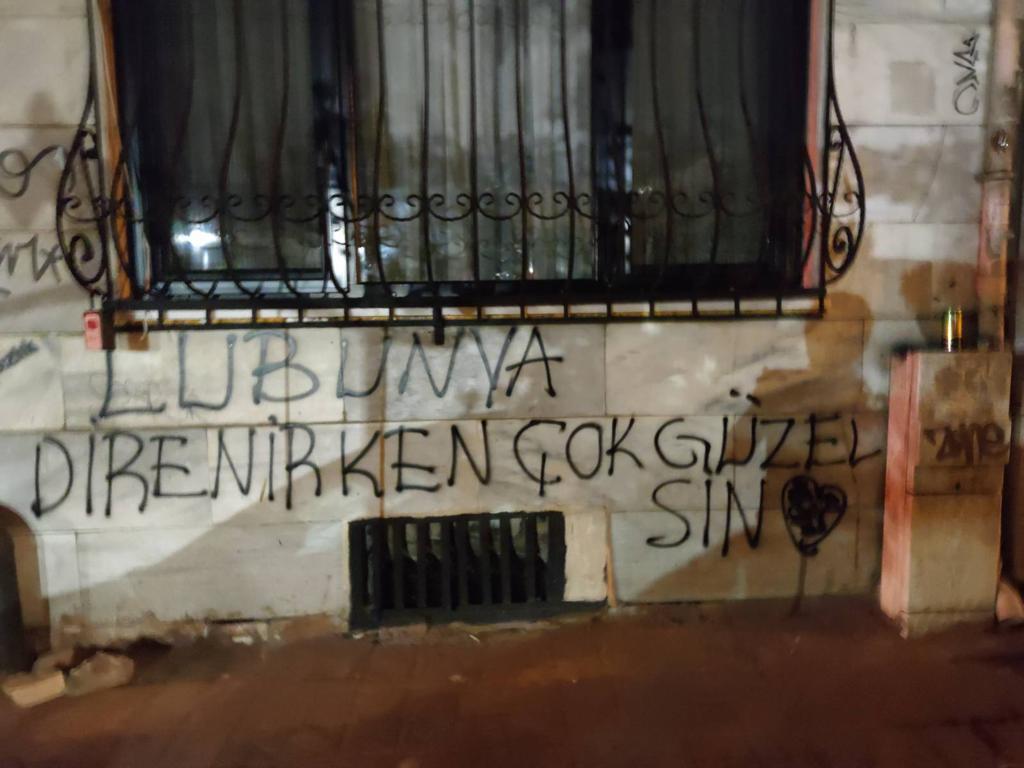 LUBUNYA
DİRENİRKEN ÇOK GÜZEL
SİN